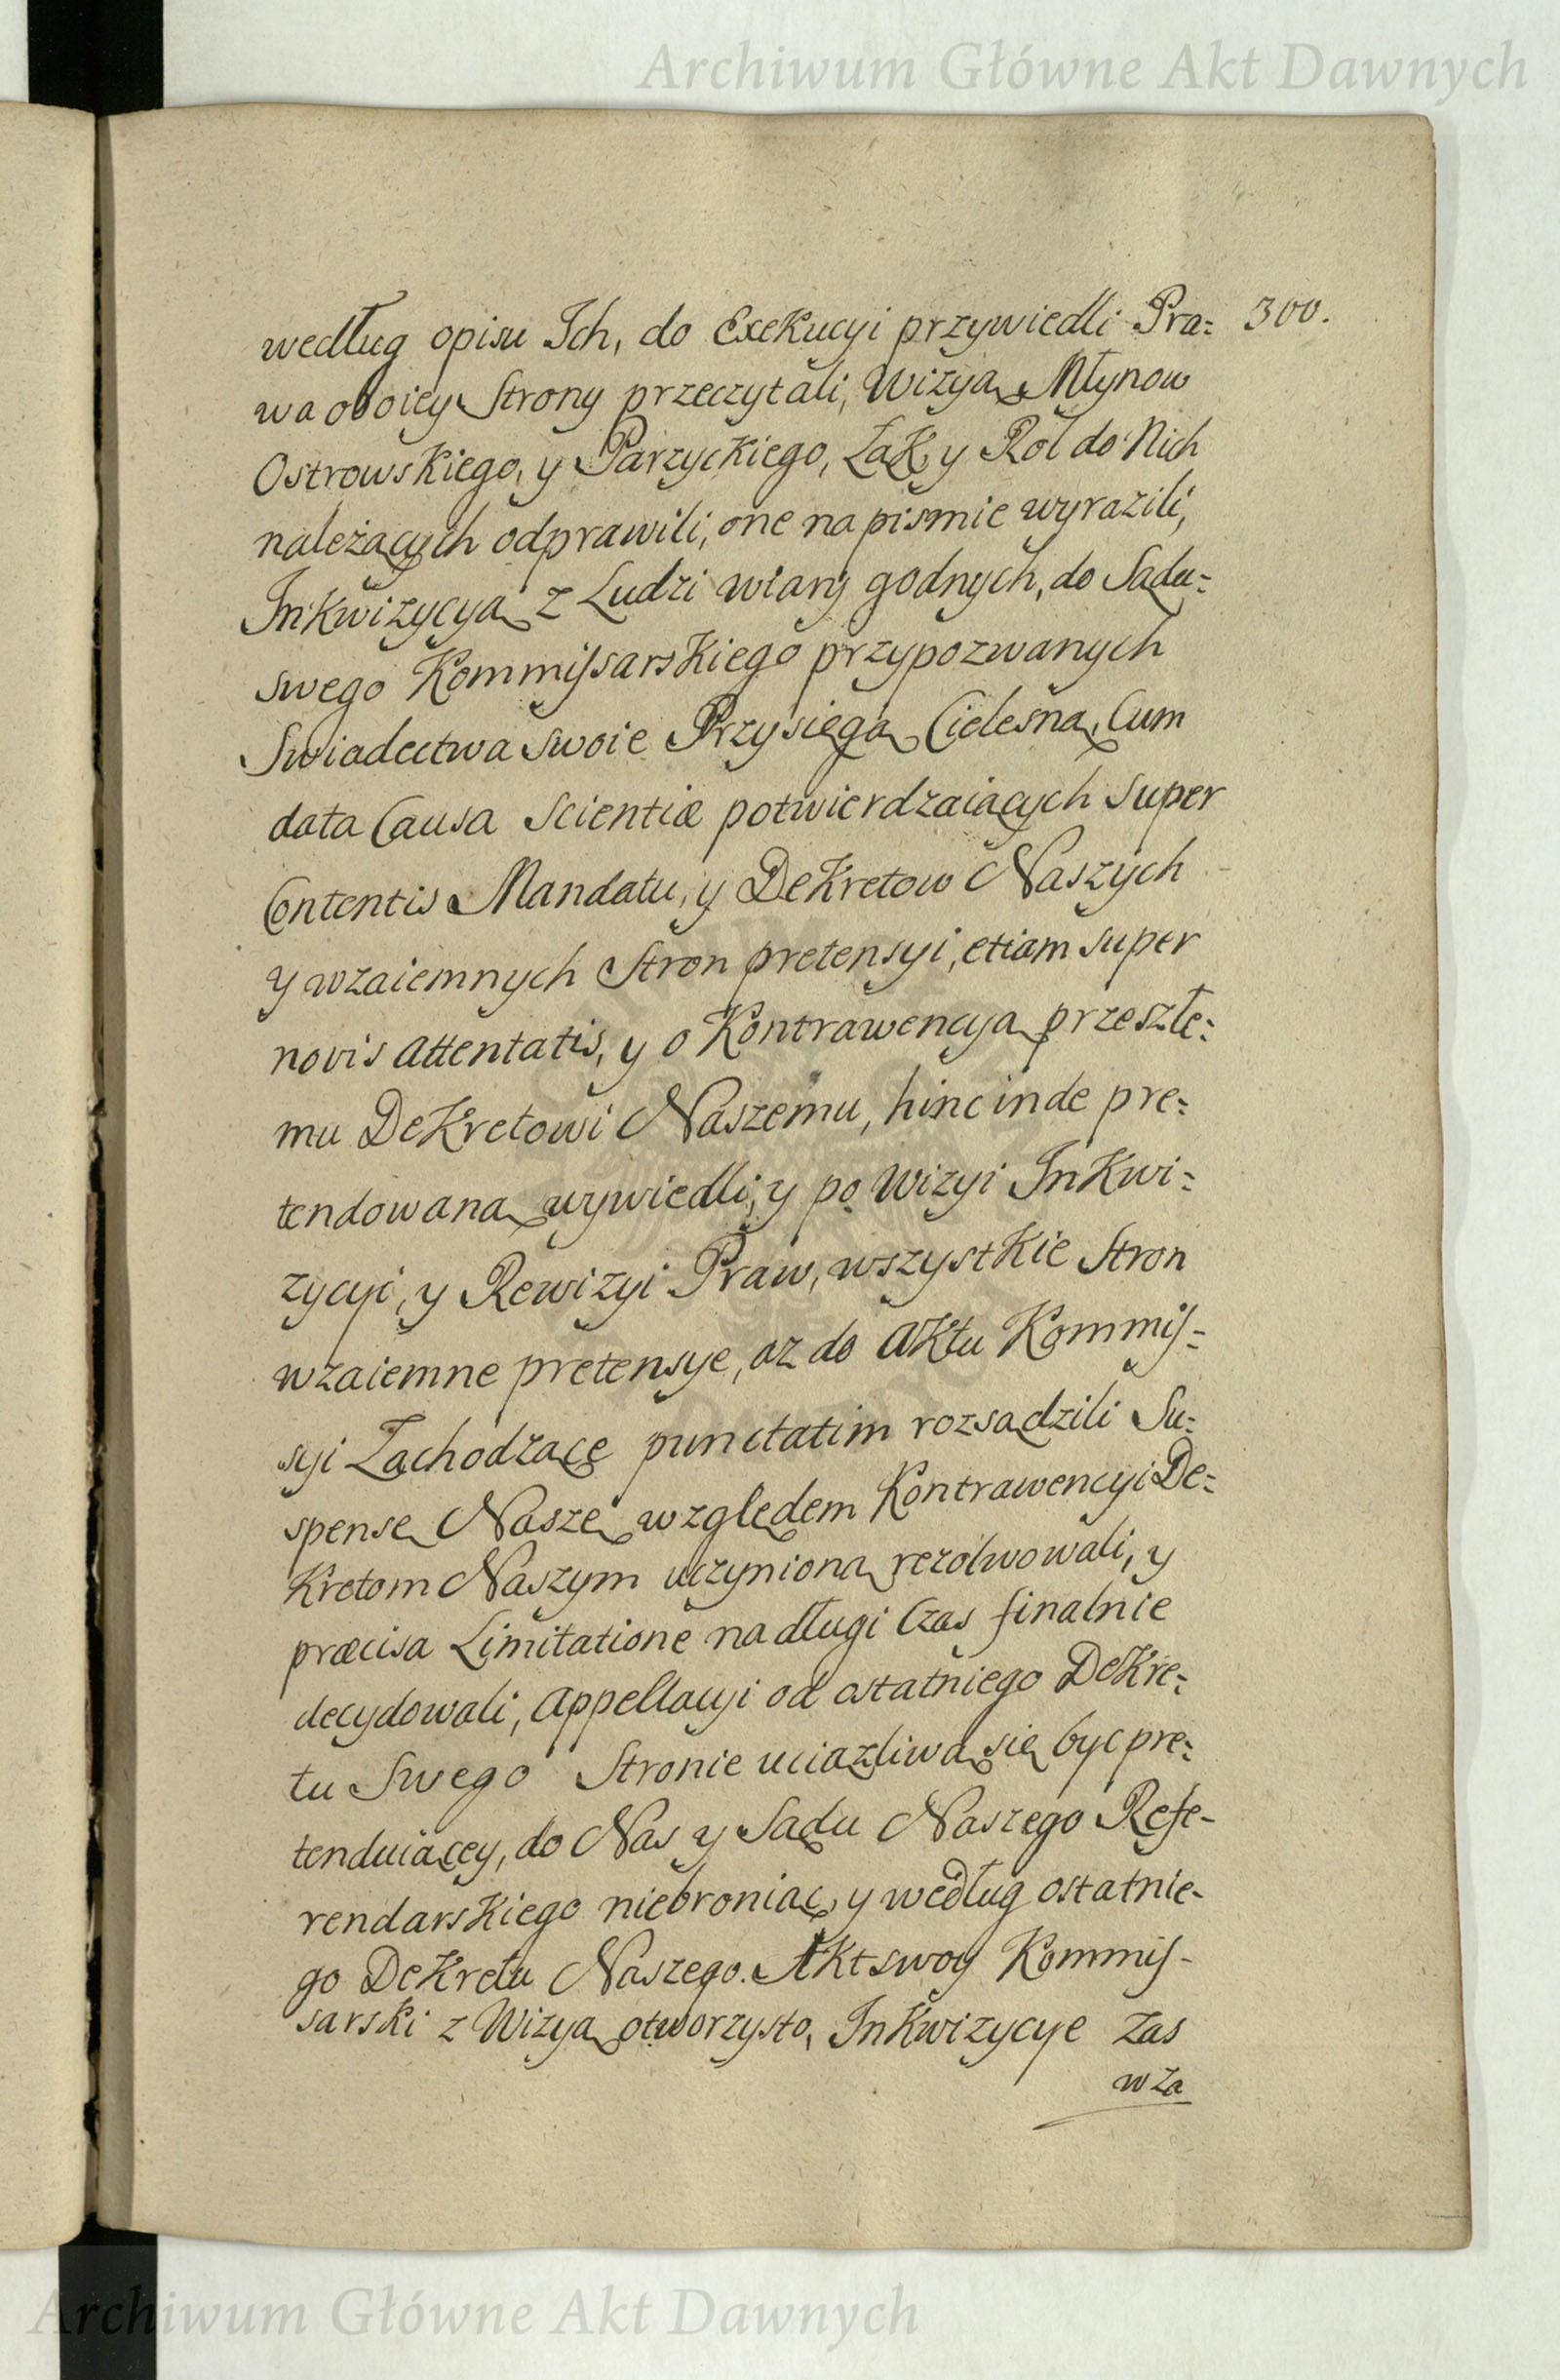 Archiwum Główne Akt Dawnych
300.
według opisu Ich, do Exekucyi przywiedli Pra=
wa oboiey Strony przeczytali, Wizyą Młynow
Ostrowskiego, y Parzyckiego, Łąk, y Rol do Nich
należących odprawili, one na pismie wyrazili,
Inkwizycyą z Ludzi wiary godnych, do Sądu=
swego Kommissarskiego przypozwanych
Swiadectwa swoie Przysięgą Cielesną, Cum
data Causa Scientiæ potwierdzaiących super
Contentis Mandatu, y Dekretow Naszych
y wzaiemnych Stron pretensyi, etiam super
novis attentatis, y o Kontrawencyą przeszłe=
mu Dekretowi Naszemu, hinc inde pre=
tendowaną wywiedli, y po Wizyi Inkwi=
zycyi, y Rewizyi Praw, wszystkie Stron
wzaiemne pretensye, az do Aktu Kommis-
syi Zachodzące punctatim rozsądzili Su=
spensę Naszę względem Kontrawencyi De=
kretom Naszym uczynioną rezolwowali, y
præcisa Limitatione na długi Czas finalnie
decydowali, Appellacyi od ostatniego Dekre=
tu Swego Stronie uciążliwą się byc pre=
tenduiącey, do Nas y Sądu Naszego Refe-
rendarskiego niebroniąc, y według ostatnie-
go Dekretu Naszego. Akt swoy Kommis-
sarski z Wizyą otworzysto, Inkwizycye zas
w za
Archiwum Główne Akt Dawnych